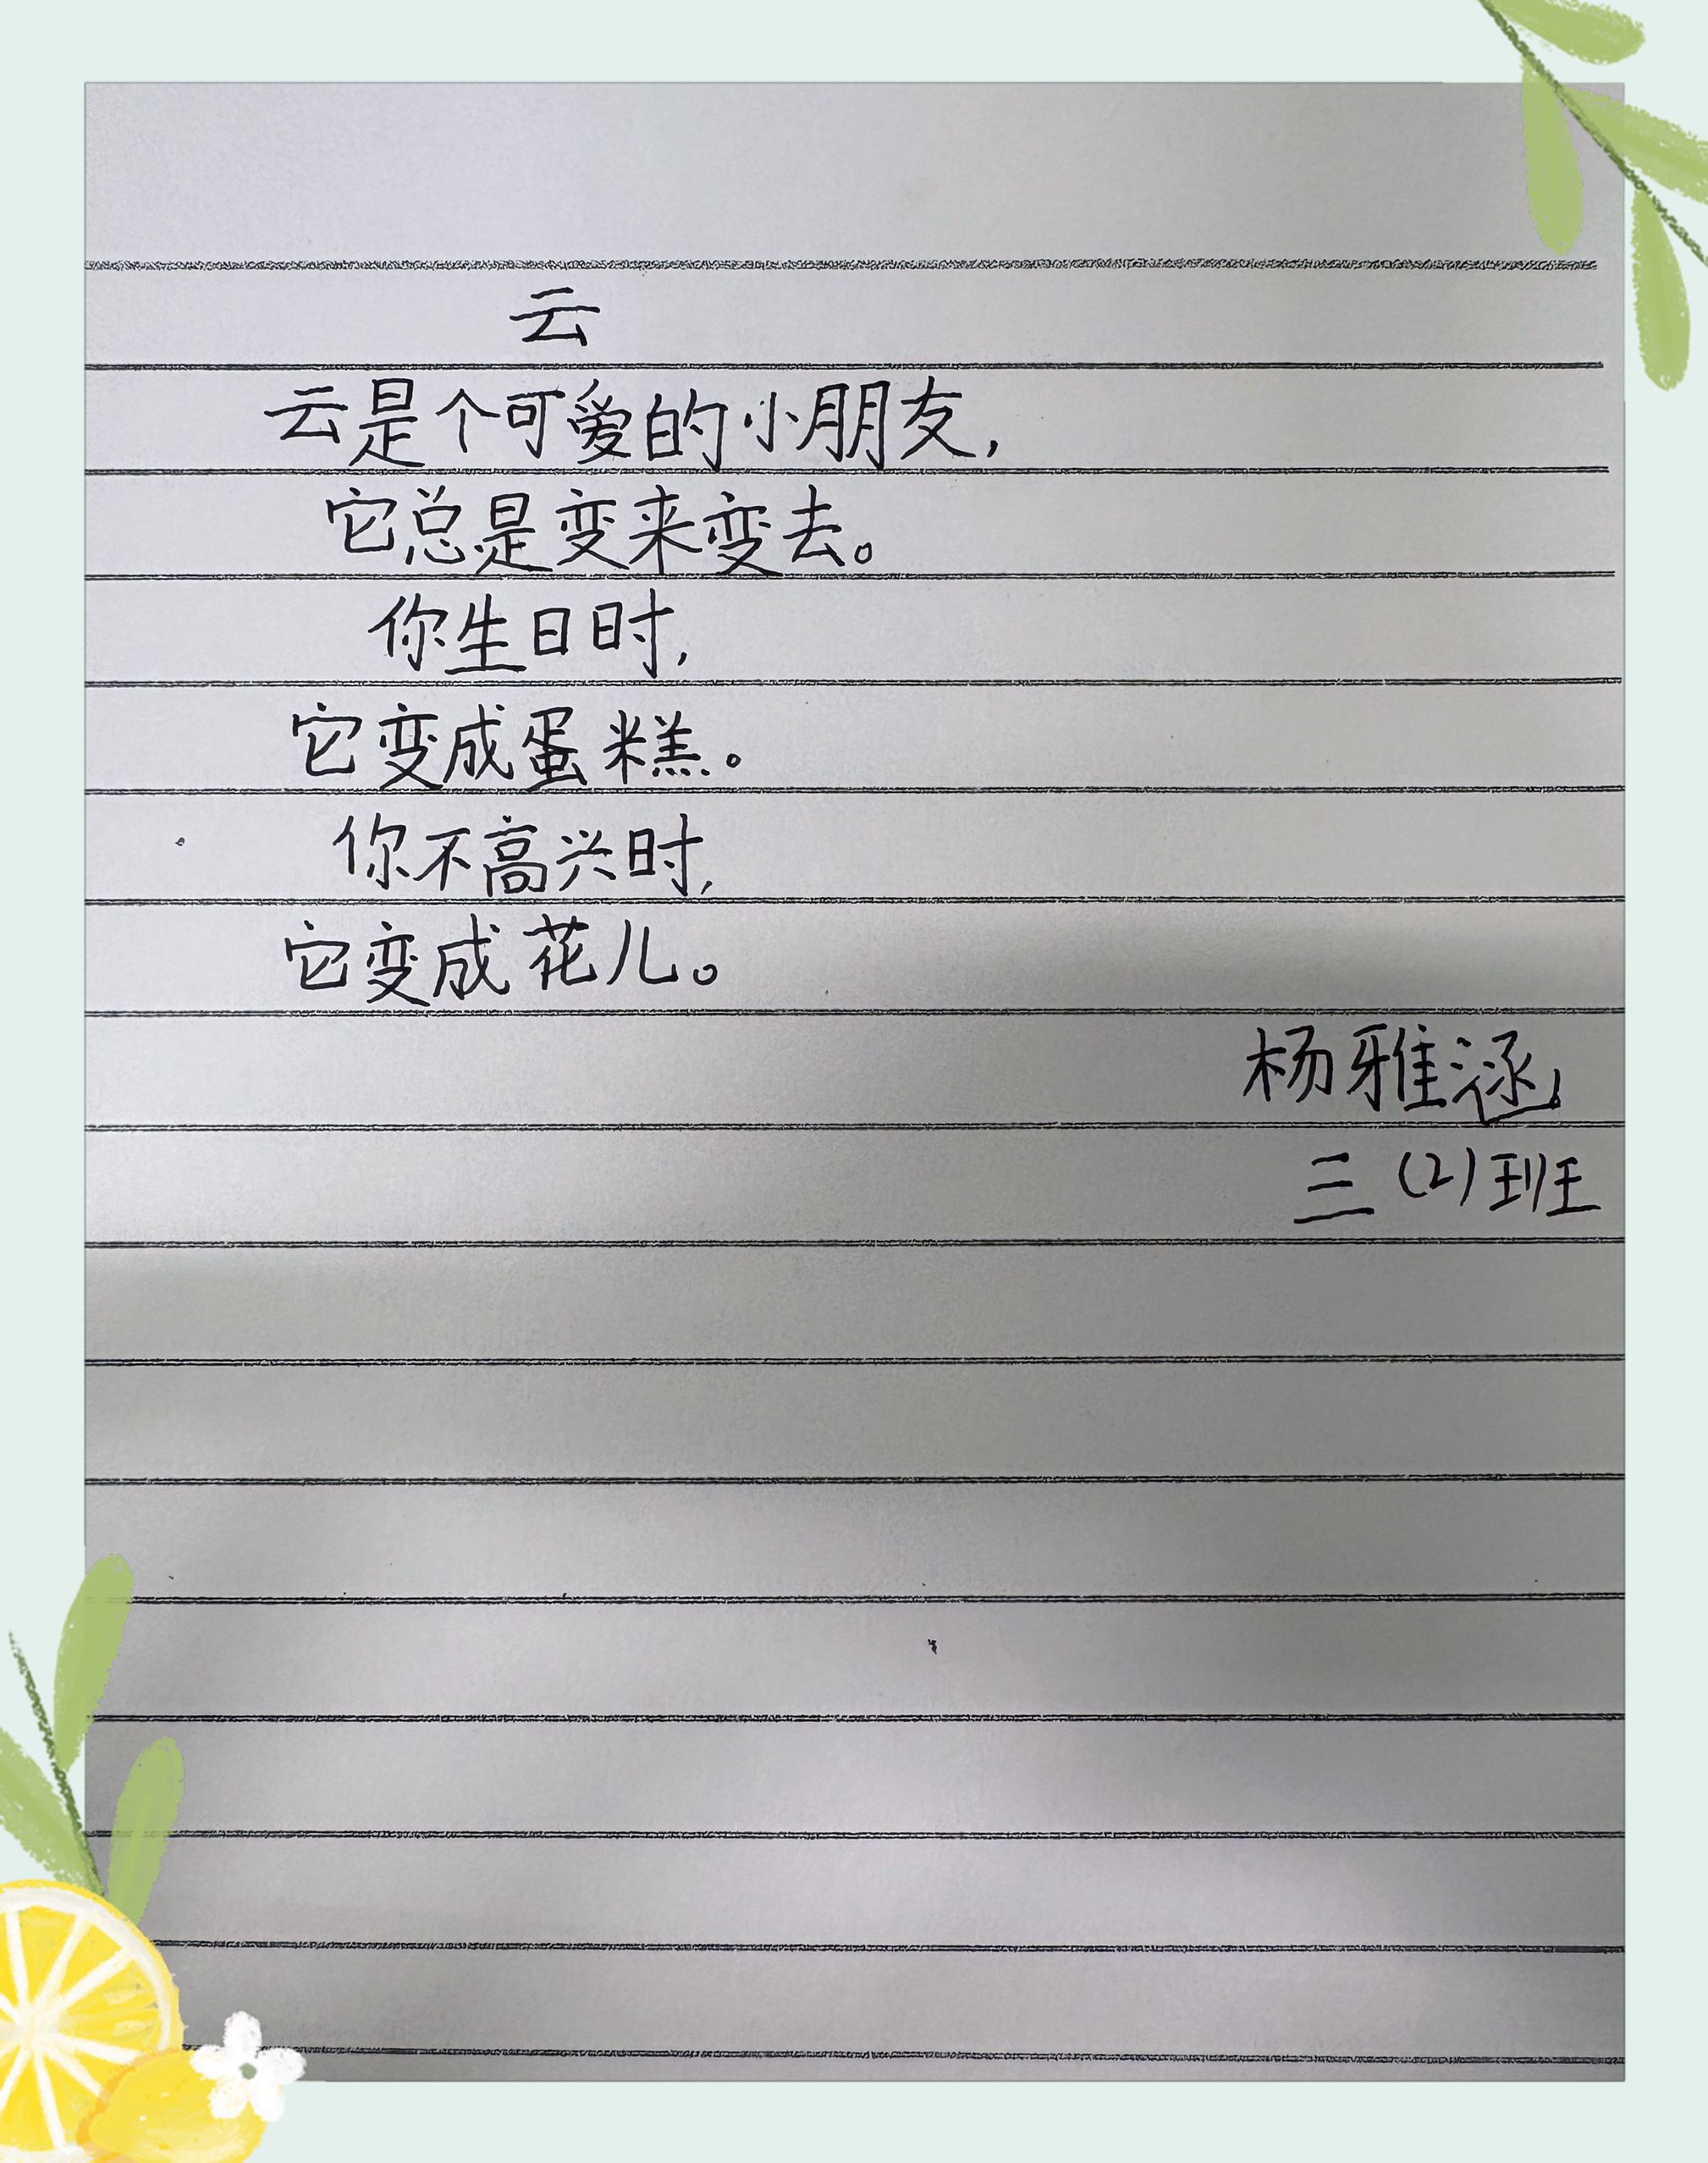 云
云是个可爱的小朋友，
它总是变来变去。
你生日时，
它变成蛋糕。
你不高兴时，
它变成花儿。
杨雅涵
三（2）班